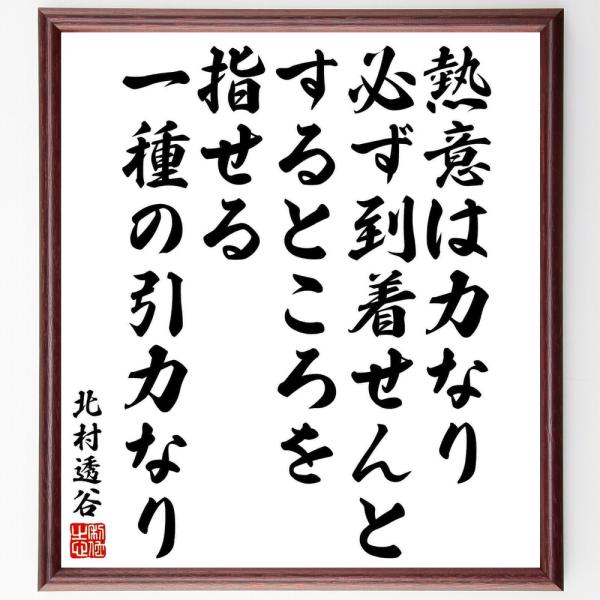 熱意は力なり
必ず到着せんと
するところを
指せる
一種の引力なり
北村透谷